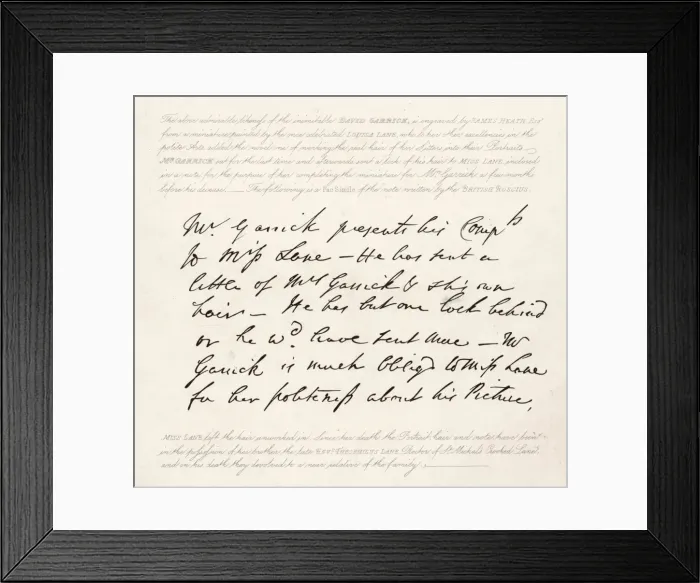 The above admirable likeness of the inimitable DAVID GARRICK, is engraved by JAMES HEATH Esqr
from a miniature painted by the once celebrated LOUISA LANE, who to her other excellencies in the
polite Arts added the novel one of working the real hair of her Sitters into their Portraits.
Mr. GARRICK sat for the last time and afterwards sent a lock of his hair to MISS LANE, inclosed
in a note for the purpose of her completing the miniature for Mrs. Garrick a few months
before his decease — The following is a Facsimile of the note written by the BRITISH ROSCIUS.
Mr. Garrick presents his Compts
to Miss Lane — He has sent a
little of Mrs Garrick's & his own
hair — He has but one lock behind
or he wd. have sent more — Mr
Garrick is much Oblig'd to Miss Lane
for her politeness about his Picture,
MISS LANE left the hair unworked in. Since her death the Portrait hair and note have been
in the possession of her brother the late REVd. THEOPHILUS LANE Rector of St. Michaels Crooked Lane
and on his death they devolved to a near relative of the family.